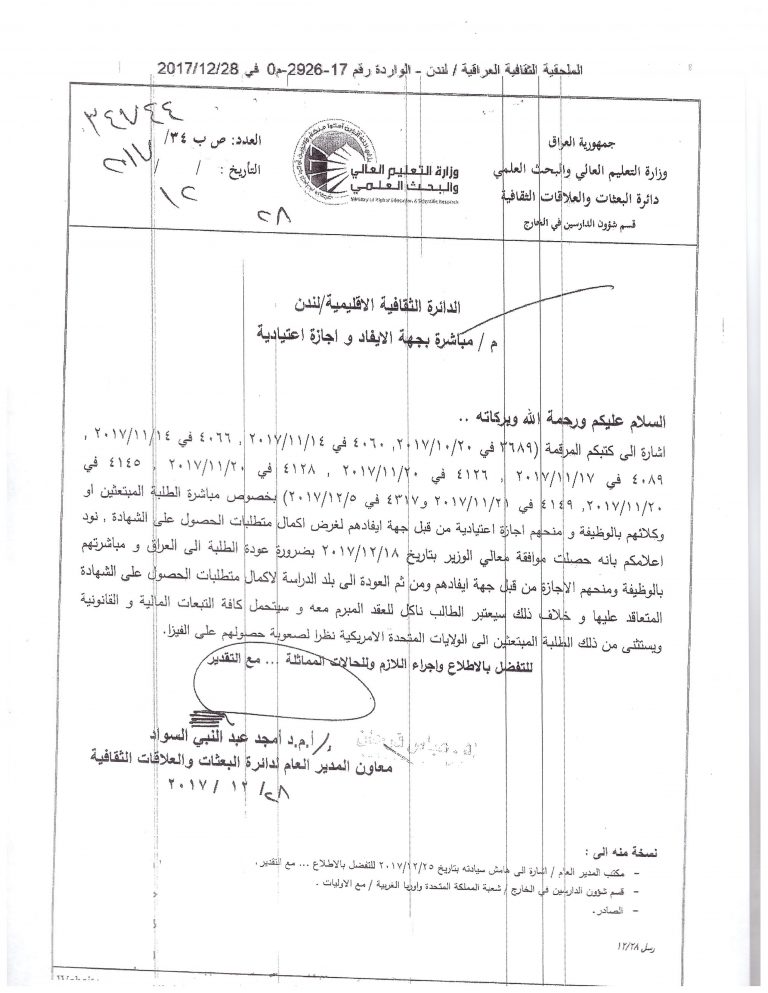 الملحقية الثقافية العراقية / لندن - الواردة رقم 17-2926-م0 في 2017/12/28
جمهورية العراق
وزارة التعليم العالي والبحث العلمي
دائرة البعثات والعلاقات الثقافية
قسم شؤون الدارسين في الخارج
وزارة التعليم العالي
والبحث العلمي
Ministry of Higher Education & Scientific Research
العدد: ص ب ٣٤/ ٣٤٧٤٤
التاريخ : ٢٨ / ١٢ / ٢٠١٧
الدائرة الثقافية الاقليمية/لندن
م / مباشرة بجهة الايفاد و اجازة اعتيادية
السلام عليكم ورحمة الله وبركاته ..
اشارة الى كتبكم المرقمة (٣٦٨٩ في ٢٠١٧/١٠/٢٠, ٤٠٦٠ في ٢٠١٧/١١/١٤ , ٤٠٦٦ في ٢٠١٧/١١/١٤ ,
٤٠٨٩ في ٢٠١٧/١١/١٧ , ٤١٢٦ في ٢٠١٧/١١/٢٠ , ٤١٢٨ في ٢٠١٧/١١/٢٠ , ٤١٤٥ في
٢٠١٧/١١/٢٠, ٤١٤٩ في ٢٠١٧/١١/٢١ و٤٣١٧ في ٢٠١٧/١٢/٥) بخصوص مباشرة الطلبة المبتعثين او
وكلائهم بالوظيفة و منحهم اجازة اعتيادية من قبل جهة ايفادهم لغرض اكمال متطلبات الحصول على الشهادة , نود
اعلامكم بانه حصلت موافقة معالي الوزير بتاريخ ٢٠١٧/١٢/١٨ بضرورة عودة الطلبة الى العراق و مباشرتهم
بالوظيفة ومنحهم الاجازة من قبل جهة ايفادهم ومن ثم العودة الى بلد الدراسة لاكمال متطلبات الحصول على الشهادة
المتعاقد عليها و خلاف ذلك سيعتبر الطالب ناكل للعقد المبرم معه و سيتحمل كافة التبعات المالية و القانونية
ويستثنى من ذلك الطلبة المبتعثين الى الولايات المتحدة الامريكية نظرا لصعوبة حصولهم على الفيزا.
للتفضل بالاطلاع واجراء اللازم وللحالات المماثلة ... مع التقدير
أ.م.د أمجد عبد النبي السواد
معاون المدير العام لدائرة البعثات والعلاقات الثقافية
٢٨/ ١٢ / ٢٠١٧
نسخة منه الى :
- مكتب المدير العام / اشارة الى هامش سيادته بتاريخ ٢٠١٧/١٢/٢٥ للتفضل بالاطلاع ... مع التقدير.
- قسم شؤون الدارسين في الخارج / شعبة المملكة المتحدة واوربا الغربية / مع الاوليات .
- الصادر.
رسل ١٢/٢٨